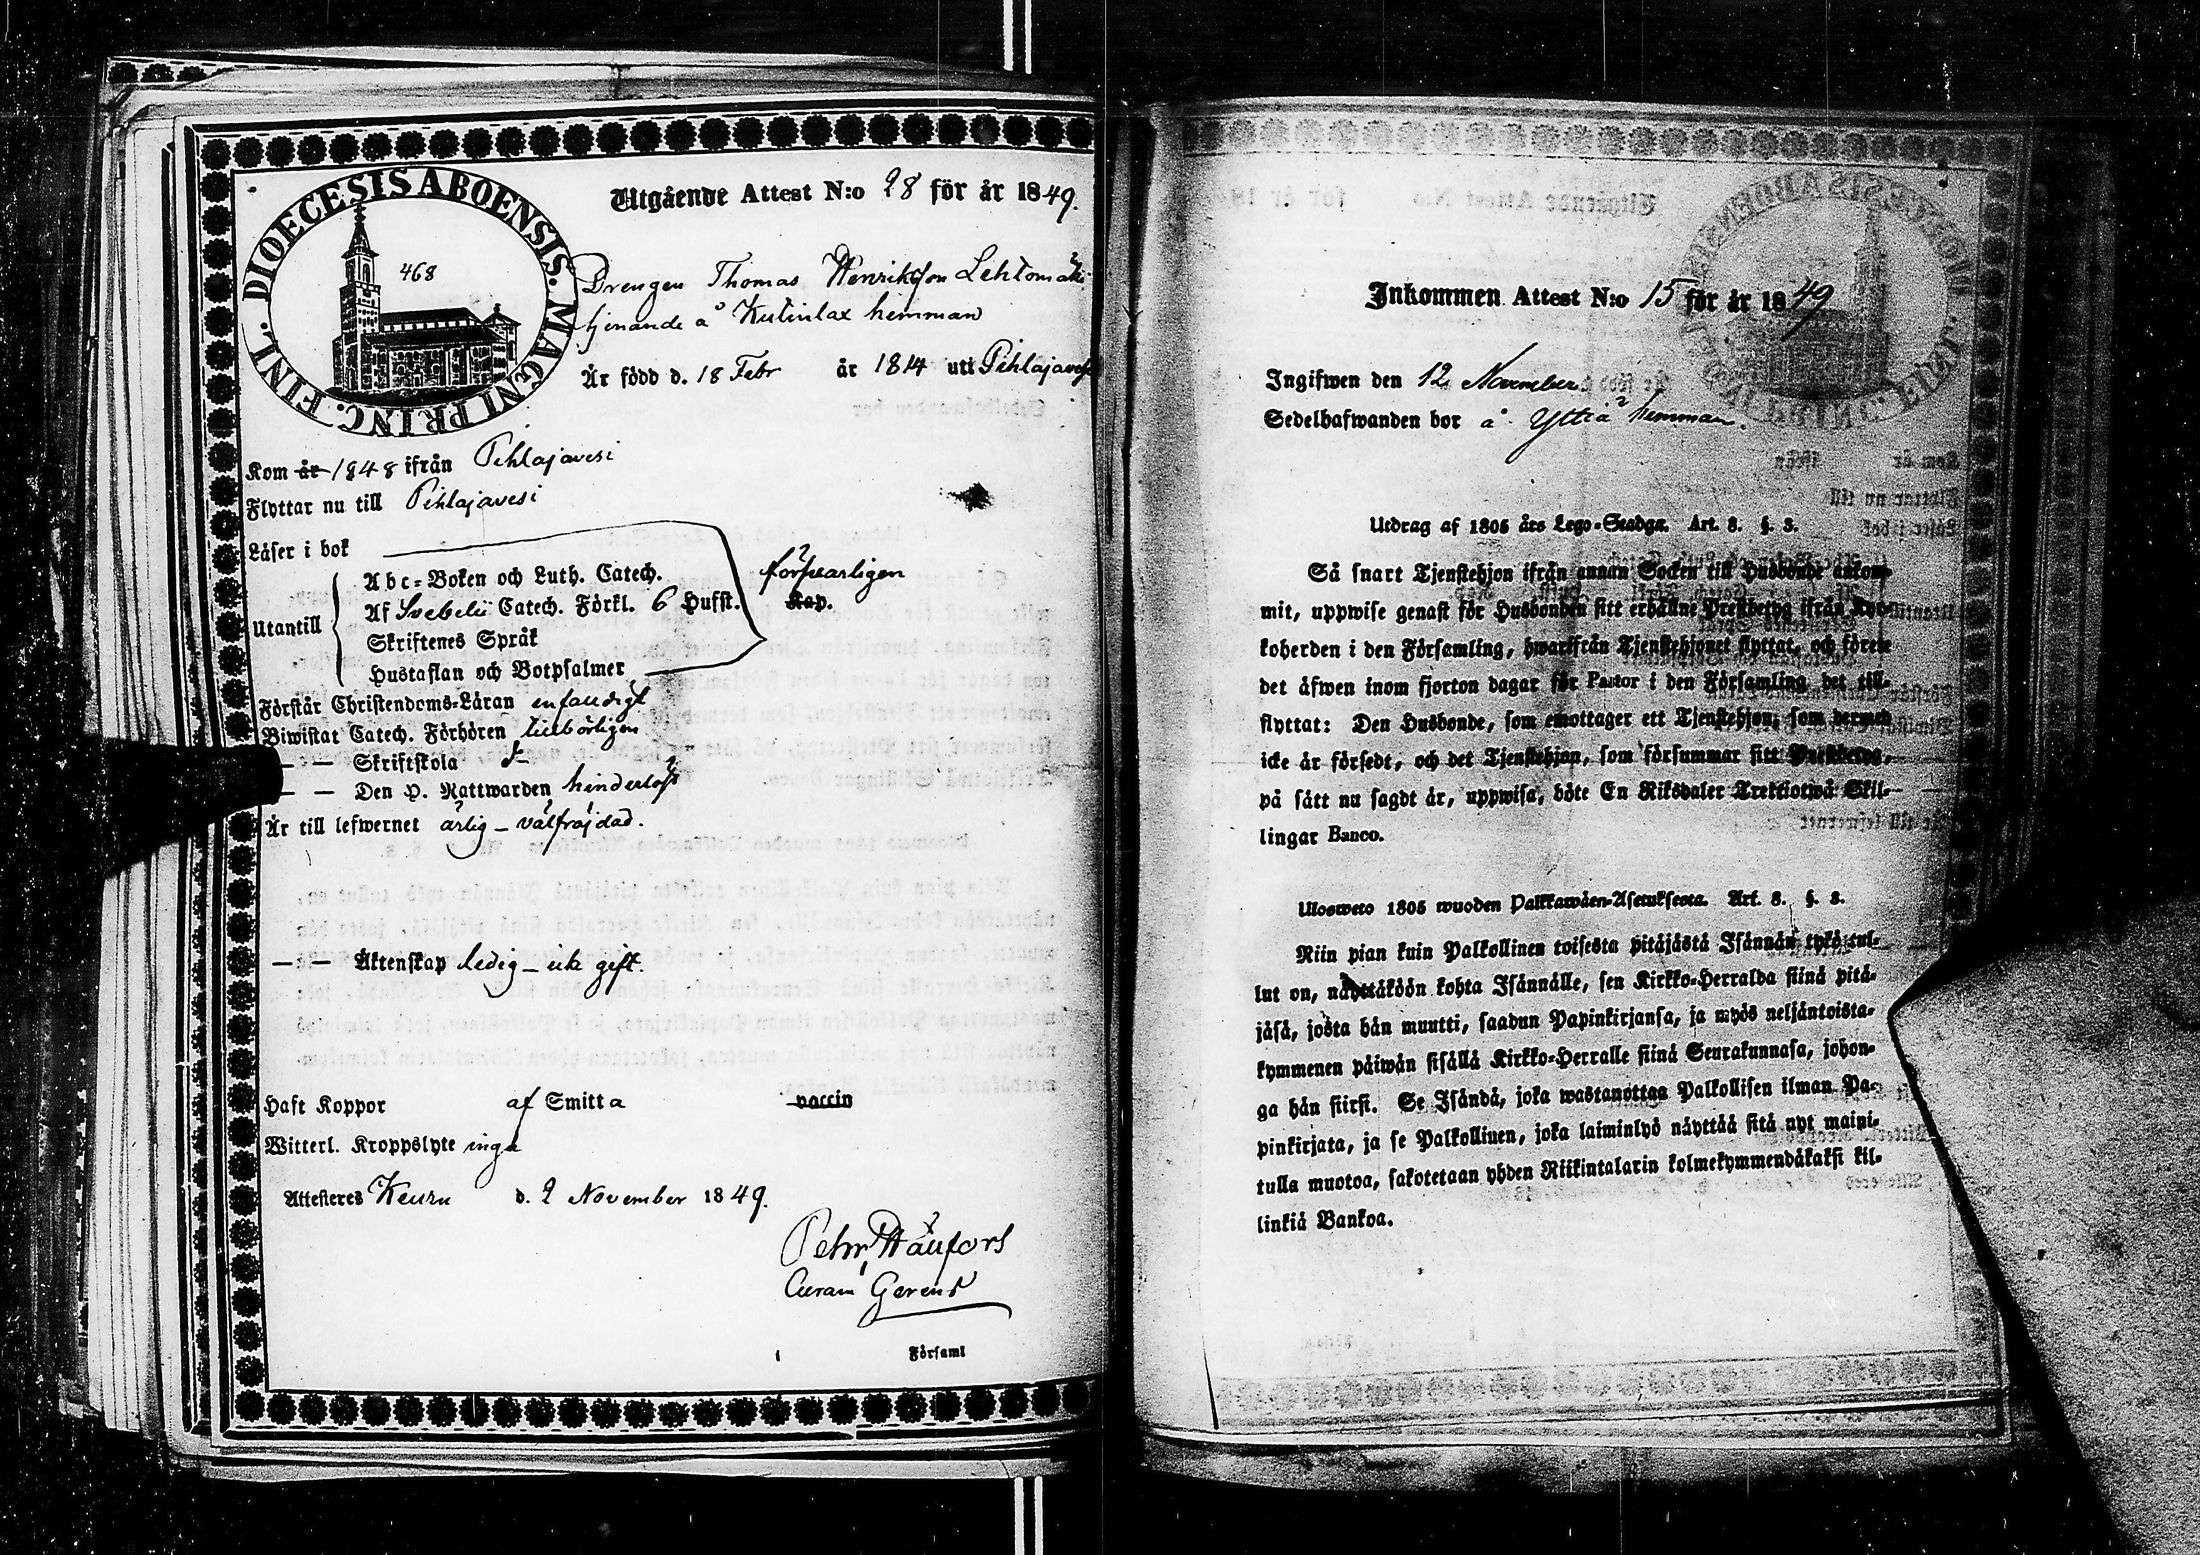 DIOECESIS ABOENSIS. MAGNI PRINC. FINL.
468
Utgående Attest N:o 28 för år 1849.
Drengen Thomas Henriksson Lehtomäki
tjenande å Kutinlax hemman
Är född d. 18 Febr år 1814 uti Pihlajavesi
Kom år 1848 ifrån Pihlajavesi
Flyttar nu till Pihlajavesi
Läser i bok
Utantill
Abc-Boken och Luth. Catech.
Af Svebelii Catech. Förkl. 6 Hufst. Kap.
Skriftenes Språk
Hustaflan och Botpsalmer
försvarligen
Förstår Christendoms-Läran enfaldigt
Biwistat Catech. Förhören tillbörligen
— — Skriftskola
— — Den H. Nattwarden hinderlöst
Är till lefwernet ärlig - välfräjdad.
— — Äktenskap ledig - icke gift.
Haft Koppor af Smitta vaccin
Witterl. Kroppslyte inga
Attesteras Keuru d. 2 November 1849.
Petr
Gerens
i Församl
Inkommen Attest N:o 15 för år 1849
Ingifwen den 12 November
Sedelhafwanden bor å Ytträ hemman.
Utdrag af 1805 års Lego-Stadga. Art. 8. §. 3.
Så snart Tjenstehjon ifrån annan Socken till Husbonde ankom-
mit, uppwise genast för Husbonden sitt erhållne Prestbetyg ifrån Kyr-
koherden i den Församling, hwarifrån Tjenstehjonet flyttat, och förete
det äfwen inom fjorton dagar för Pastor i den Församling det till-
flyttat: Den Husbonde, som emottager ett Tjenstehjon, som dermed
icke är försedt, och det Tjenstehjon, som försummar sitt Prestbetyg,
på sätt nu sagdt är, uppwisa, böte En Riksdaler Trettiotwå Skil-
lingar Banco.
Ulosweto 1805 wuoden Palkkawäen-Asetuksesta. Art. 8. §. 3.
Niin pian kuin Palkollinen toisesta pitäjästä Isännän tykö tul-
lut on, näyttäköön kohta Isännälle, sen Kirkko-Herralda siinä pitä-
jäsä, josta hän muutti, saadun Papinkirjansa, ja myös neljäntoista-
kymmenen päiwän sisällä Kirkko-Herralle siinä Seurakunnasa, johon-
ga hän siirsi. Se Isändä, joka wastanottaa Palkollisen ilman Pa-
pinkirjata, ja se Palkollinen, joka laiminlyö näyttää sitä nyt maini-
tulla muotoa, sakotetaan yhden Riikintalarin kolmekymmendäkaksi kil-
linkiä Bankoa.